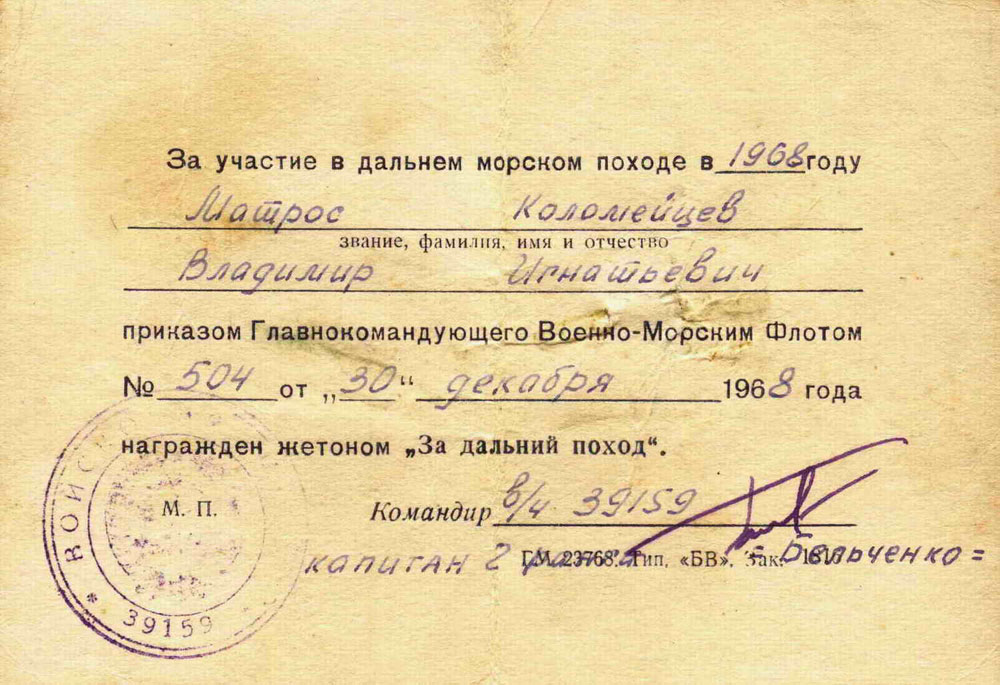 За участие в дальнем морском походе в 1968 году
Матрос Коломейцев
звание, фамилия, имя и отчество
Владимир Игнатьевич
приказом Главнокомандующего Военно-Морским Флотом
№ 504 от „30“ декабря 1968 года
награжден жетоном „За дальний поход“.
М. П.
Командир в/ч 39159
капитан 2 ранга Бельченко =
ГМ 23768. Тип. «БВ». Зак. 1810
* ВОЙСКО
* 39159